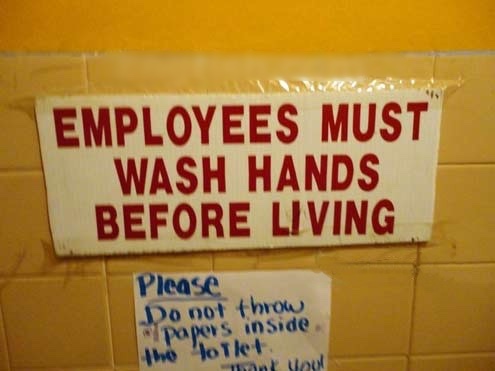 EMPLOYEES MUST
WASH HANDS
BEFORE LIVING
Please
Do not throw
papers inside
the toilet.
Thank you!